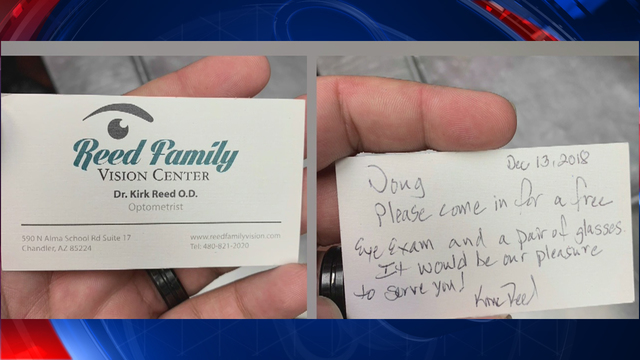 Reed Family
VISION CENTER
Dr. Kirk Reed O.D.
Optometrist
590 N Alma School Rd Suite 17
Chandler, AZ 85224
www.reedfamilyvision.com
Tel: 480-821-2020
Dec 13, 2018
Doug
Please come in for a free
Eye Exam and a pair of glasses.
It would be our pleasure
to serve you!
Kirk Reed